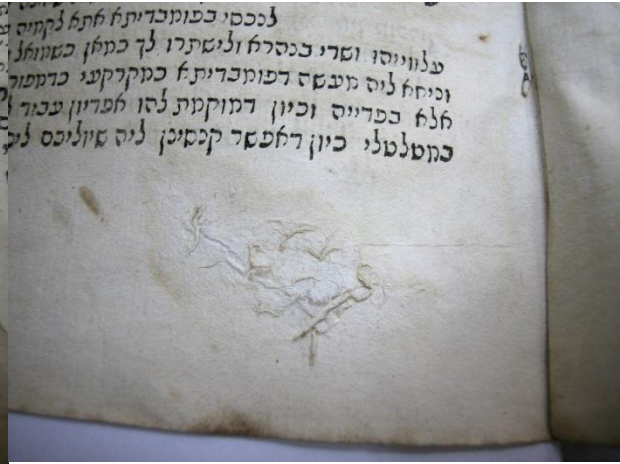 לנכסי בפומבדיתא אתא לקמיה
עלווייהו ושרי בנהרא ולישתרו לך כמאן כשמואל
וניחא ליה מעשה דפומבדיתא במקרקעי כדמפור
אלא בפדייה וכיון דמוקמת להו אפדיון עבוד
במטלטלי כיון דאפשר קנסינן ליה שיוליכם לים